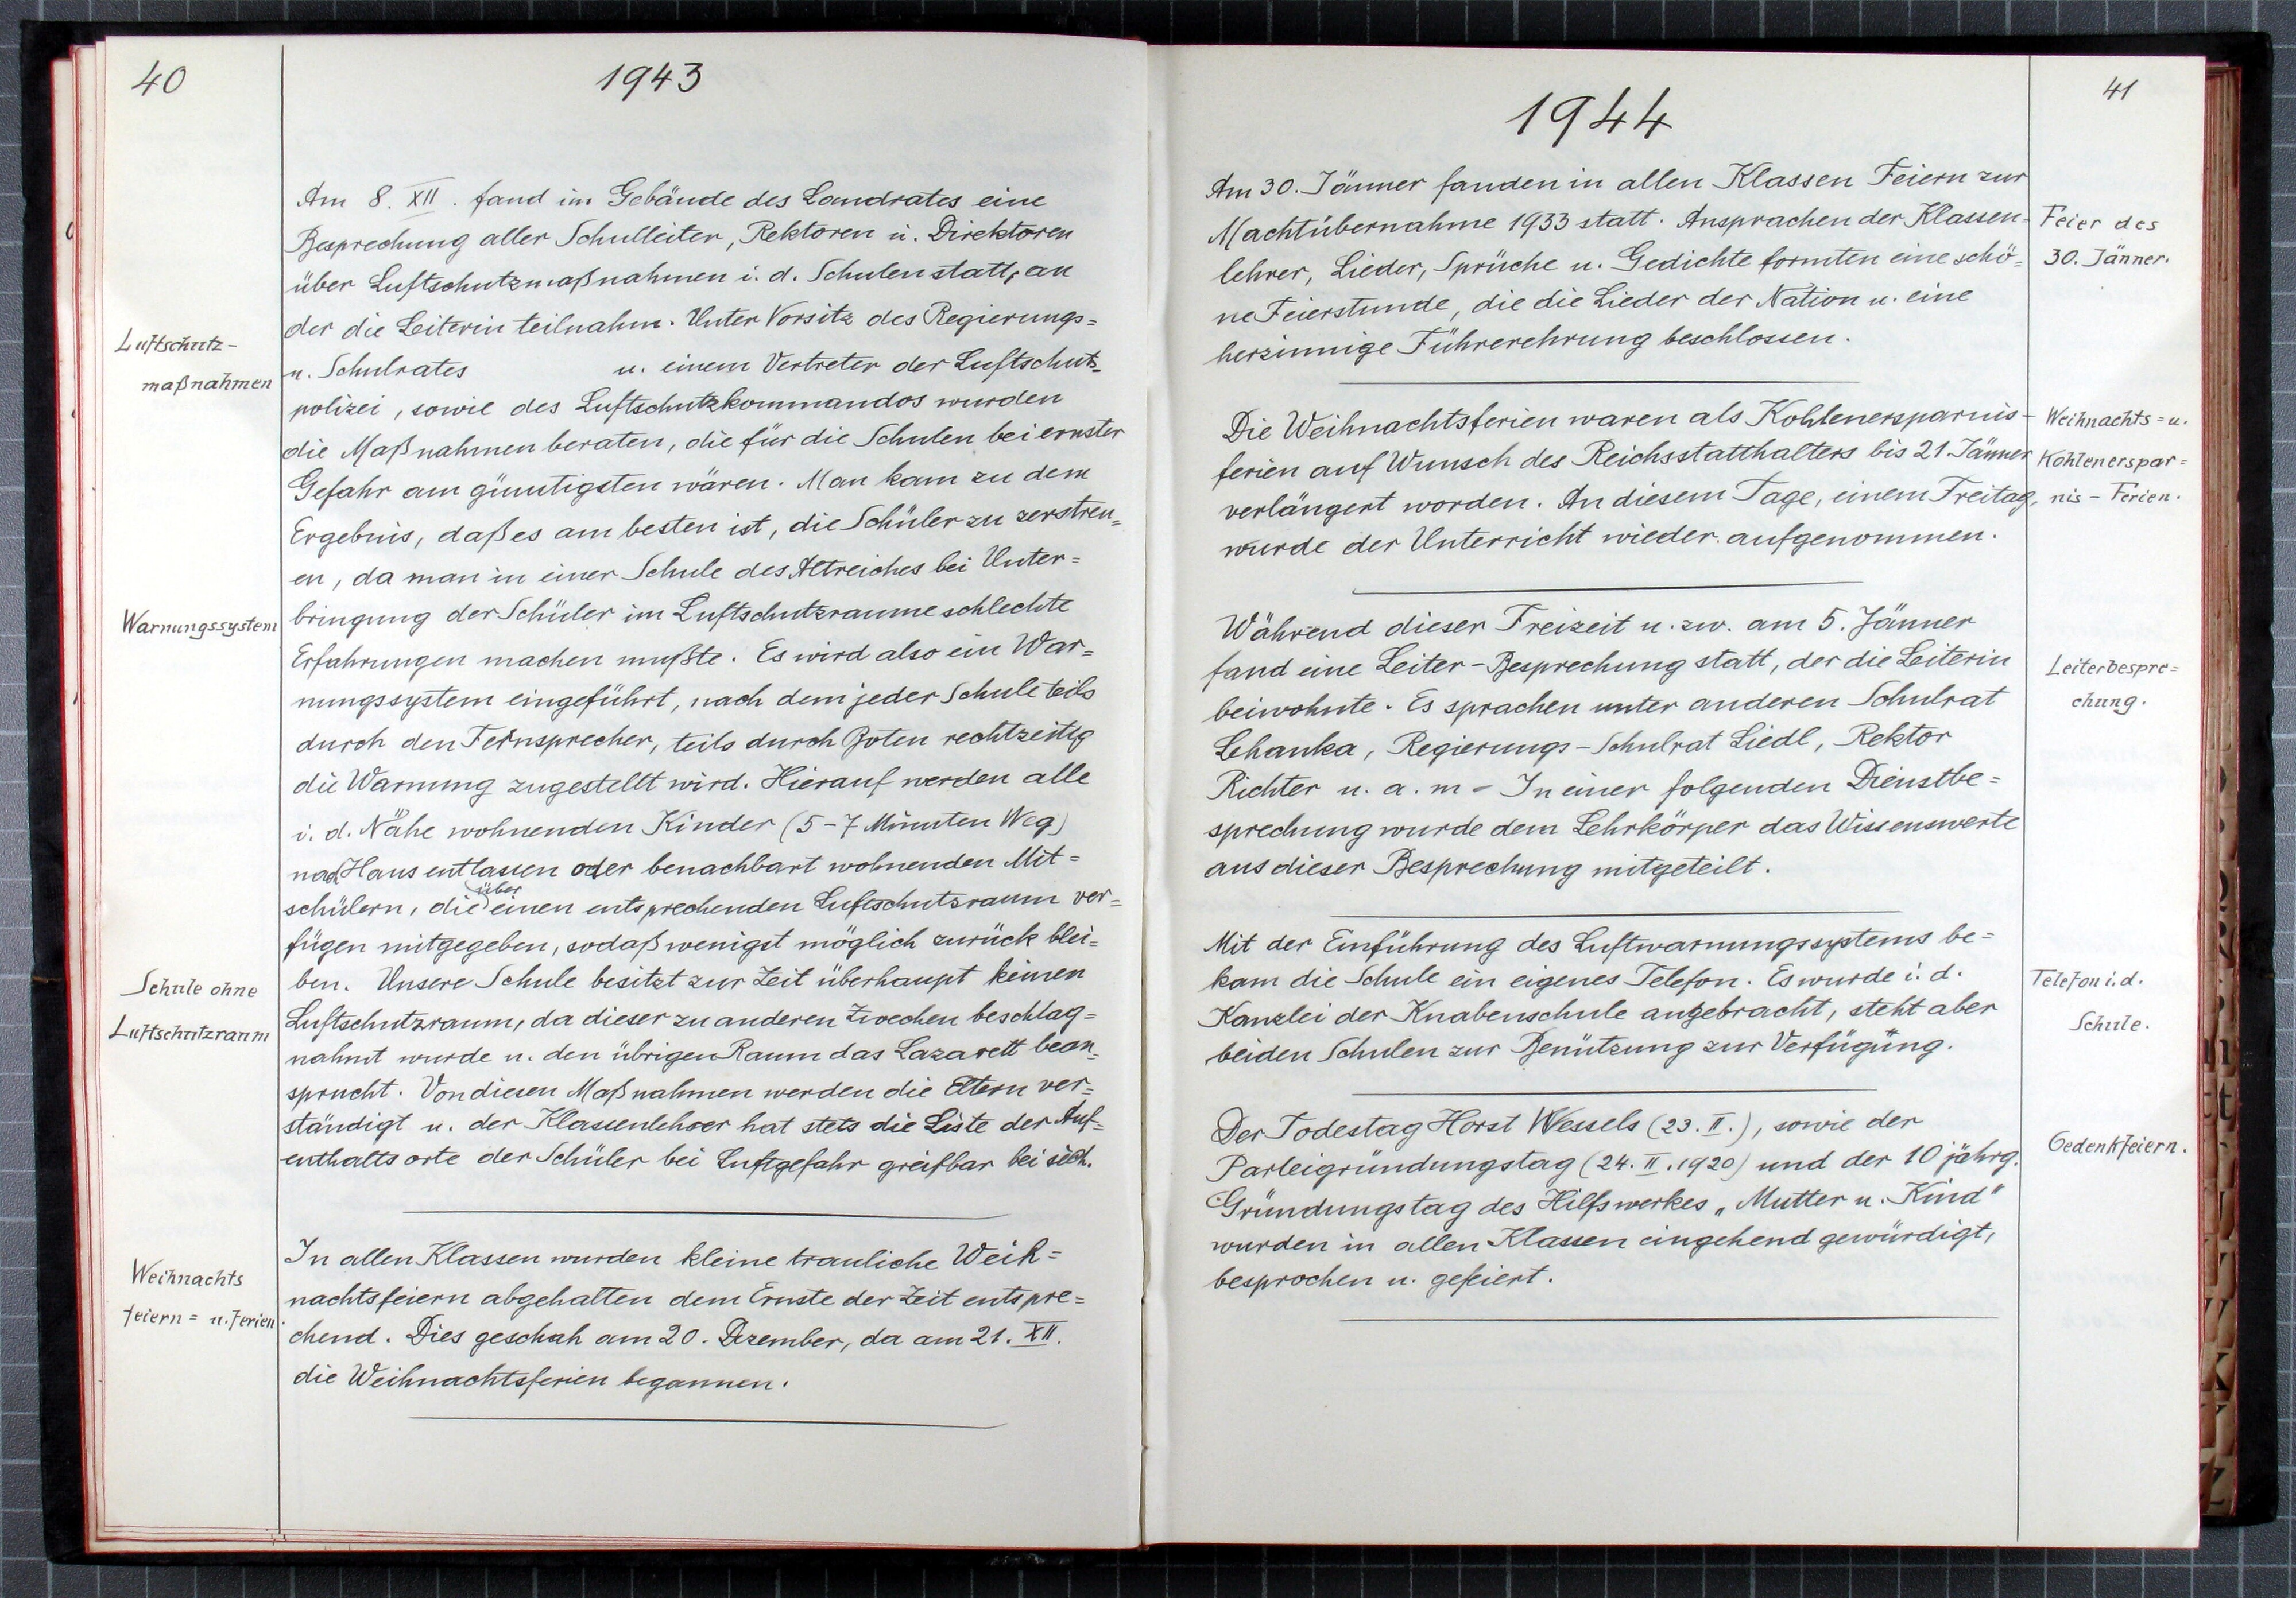 40
1943
Am 8. XII. fand im Gebäude des Landrates eine
Besprechung aller Schulleiter, Rektoren u. Direktoren
über Luftschutzmaßnahmen i. d. Schulen statt, an
der die Leiterin teilnahm. Unter Vorsitz des Regierungs=
Luftschutz-
maßnahmen
u. Schulrates u. einem Vertreter der Luftschutz=
polizei, sowie des Luftschutzkommandos wurden
die Maßnahmen beraten, die für die Schulen bei ernster
Gefahr am günstigsten wären. Man kam zu dem
Ergebnis, daß es am besten ist, die Schüler zu zerstreu=
en, da man in einer Schule des Altreiches bei Unter=
Warnungssystem
bringung der Schüler im Luftschutzraume schlechte
Erfahrungen machen mußte. Es wird also ein War=
nungssystem eingeführt, nach dem jeder Schule teils
durch den Fernsprecher, teils durch Boten rechtzeitig
die Warnung zugestellt wird. Hierauf werden alle
i. d. Nähe wohnenden Kinder (5-7 Minuten Weg)
nach Haus entlassen oder benachbart wohnenden Mit=
schülern, die über einen entsprechenden Luftschutzraum ver=
fügen mitgegeben, sodaß wenigst möglich zurück blei=
Schule ohne
Luftschutzraum
ben. Unsere Schule besitzt zur Zeit überhaupt keinen
Luftschutzraum, da dieser zu anderen Zwecken beschlag=
nahmt wurde u. den übrigen Raum das Lazarett bean=
sprucht. Von diesen Maßnahmen werden die Eltern ver=
ständigt u. der Klassenlehrer hat stets die Liste der Auf=
enthaltsorte der Schüler bei Luftgefahr greifbar bei sich.
Weihnachts
feiern = u. Ferien.
In allen Klassen wurden kleine trauliche Weih=
nachtsfeiern abgehalten dem Ernste der Zeit entspre=
chend. Dies geschah am 20. Dezember, da am 21. XII.
die Weihnachtsferien begannen.
41
1944
Am 30. Jänner fanden in allen Klassen Feiern zur
Machtübernahme 1933 statt. Ansprachen der Klassen=
lehrer, Lieder, Sprüche u. Gedichte formten eine schö=
ne Feierstunde, die die Lieder der Nation u. eine
herzinnige Führerehrung beschlossen.
Feier des
30. Jänner.
Die Weihnachtsferien waren als Kohlenersparnis-
ferien auf Wunsch des Reichsstatthalters bis 21. Jänner
verlängert worden. An diesem Tage, einem Freitag,
wurde der Unterricht wieder aufgenommen.
Weihnachts= u.
Kohlenerspar=
nis - Ferien.
Während dieser Freizeit u. zw. am 5. Jänner
fand eine Leiter-Besprechung statt, der die Leiterin
beiwohnte. Es sprachen unter anderen Schulrat
Lehanka, Regierungs-Schulrat Liedl, Rektor
Richter u. a. m - In einer folgenden Dienstbe=
sprechung wurde dem Lehrkörper das Wissenswerte
aus dieser Besprechung mitgeteilt.
Leiterbespre=
chung.
Mit der Einführung des Luftwarnungssystems be=
kam die Schule ein eigenes Telefon. Es wurde i. d.
Kanzlei der Knabenschule angebracht, steht aber
beiden Schulen zur Benützung zur Verfügung.
Telefon i. d.
Schule.
Der Todestag Horst Wessels (23. II.), sowie der
Parteigründungstag (24. II. 1920) und der 10 jährg.
Gründungstag des Hilfswerkes „Mutter u. Kind"
wurden in allen Klassen eingehend gewürdigt,
besprochen u. gefeiert.
Gedenkfeiern.